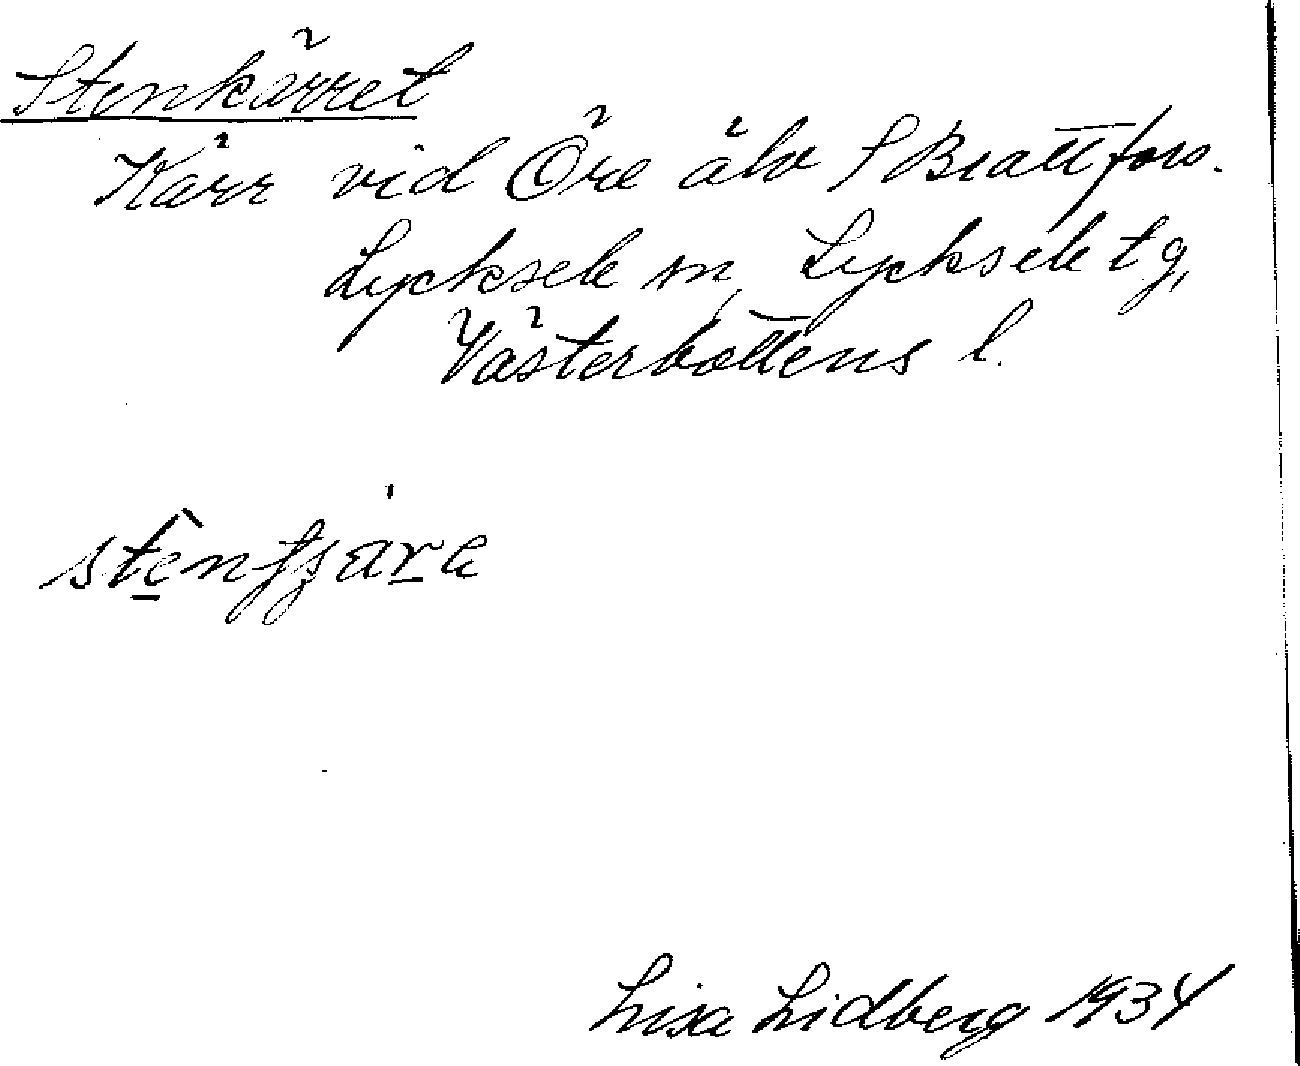 Stenkärret
Kärr vid Öre älv S Brattfors.
Lycksele sn, Lycksele tg,
Västerbottens l.
Lisa Lidberg 1934